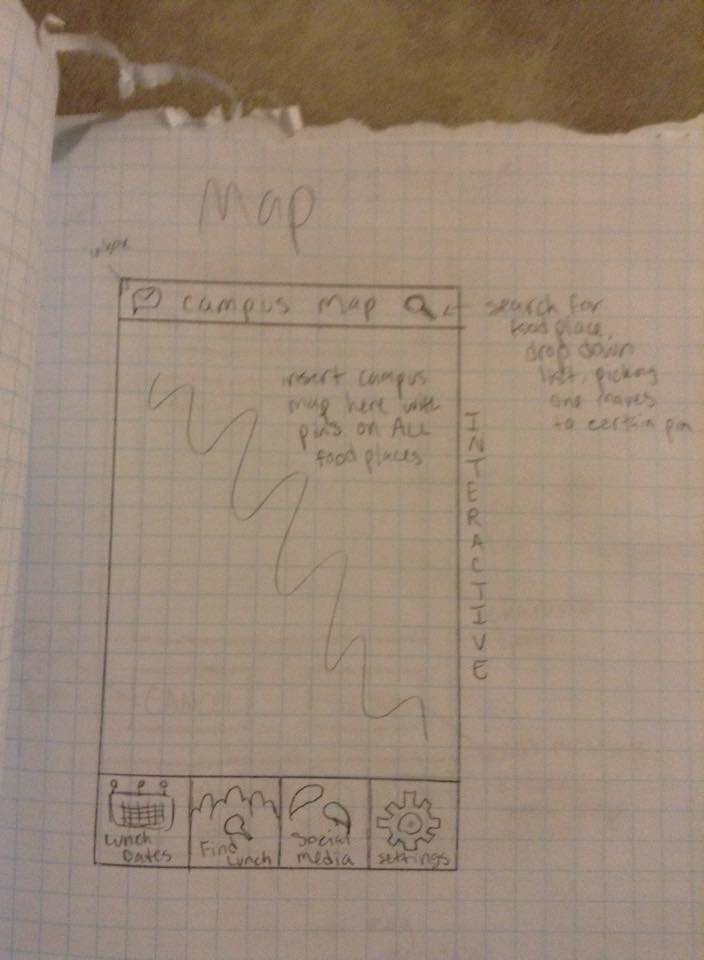 Map
campus map
search for
food place,
drop down
list, picking
one moves
to certain pin
insert campus
map here with
pins on ALL
food places
INTERACTIVE
Lunch
Dates
Find
Lunch
Social
media
settings